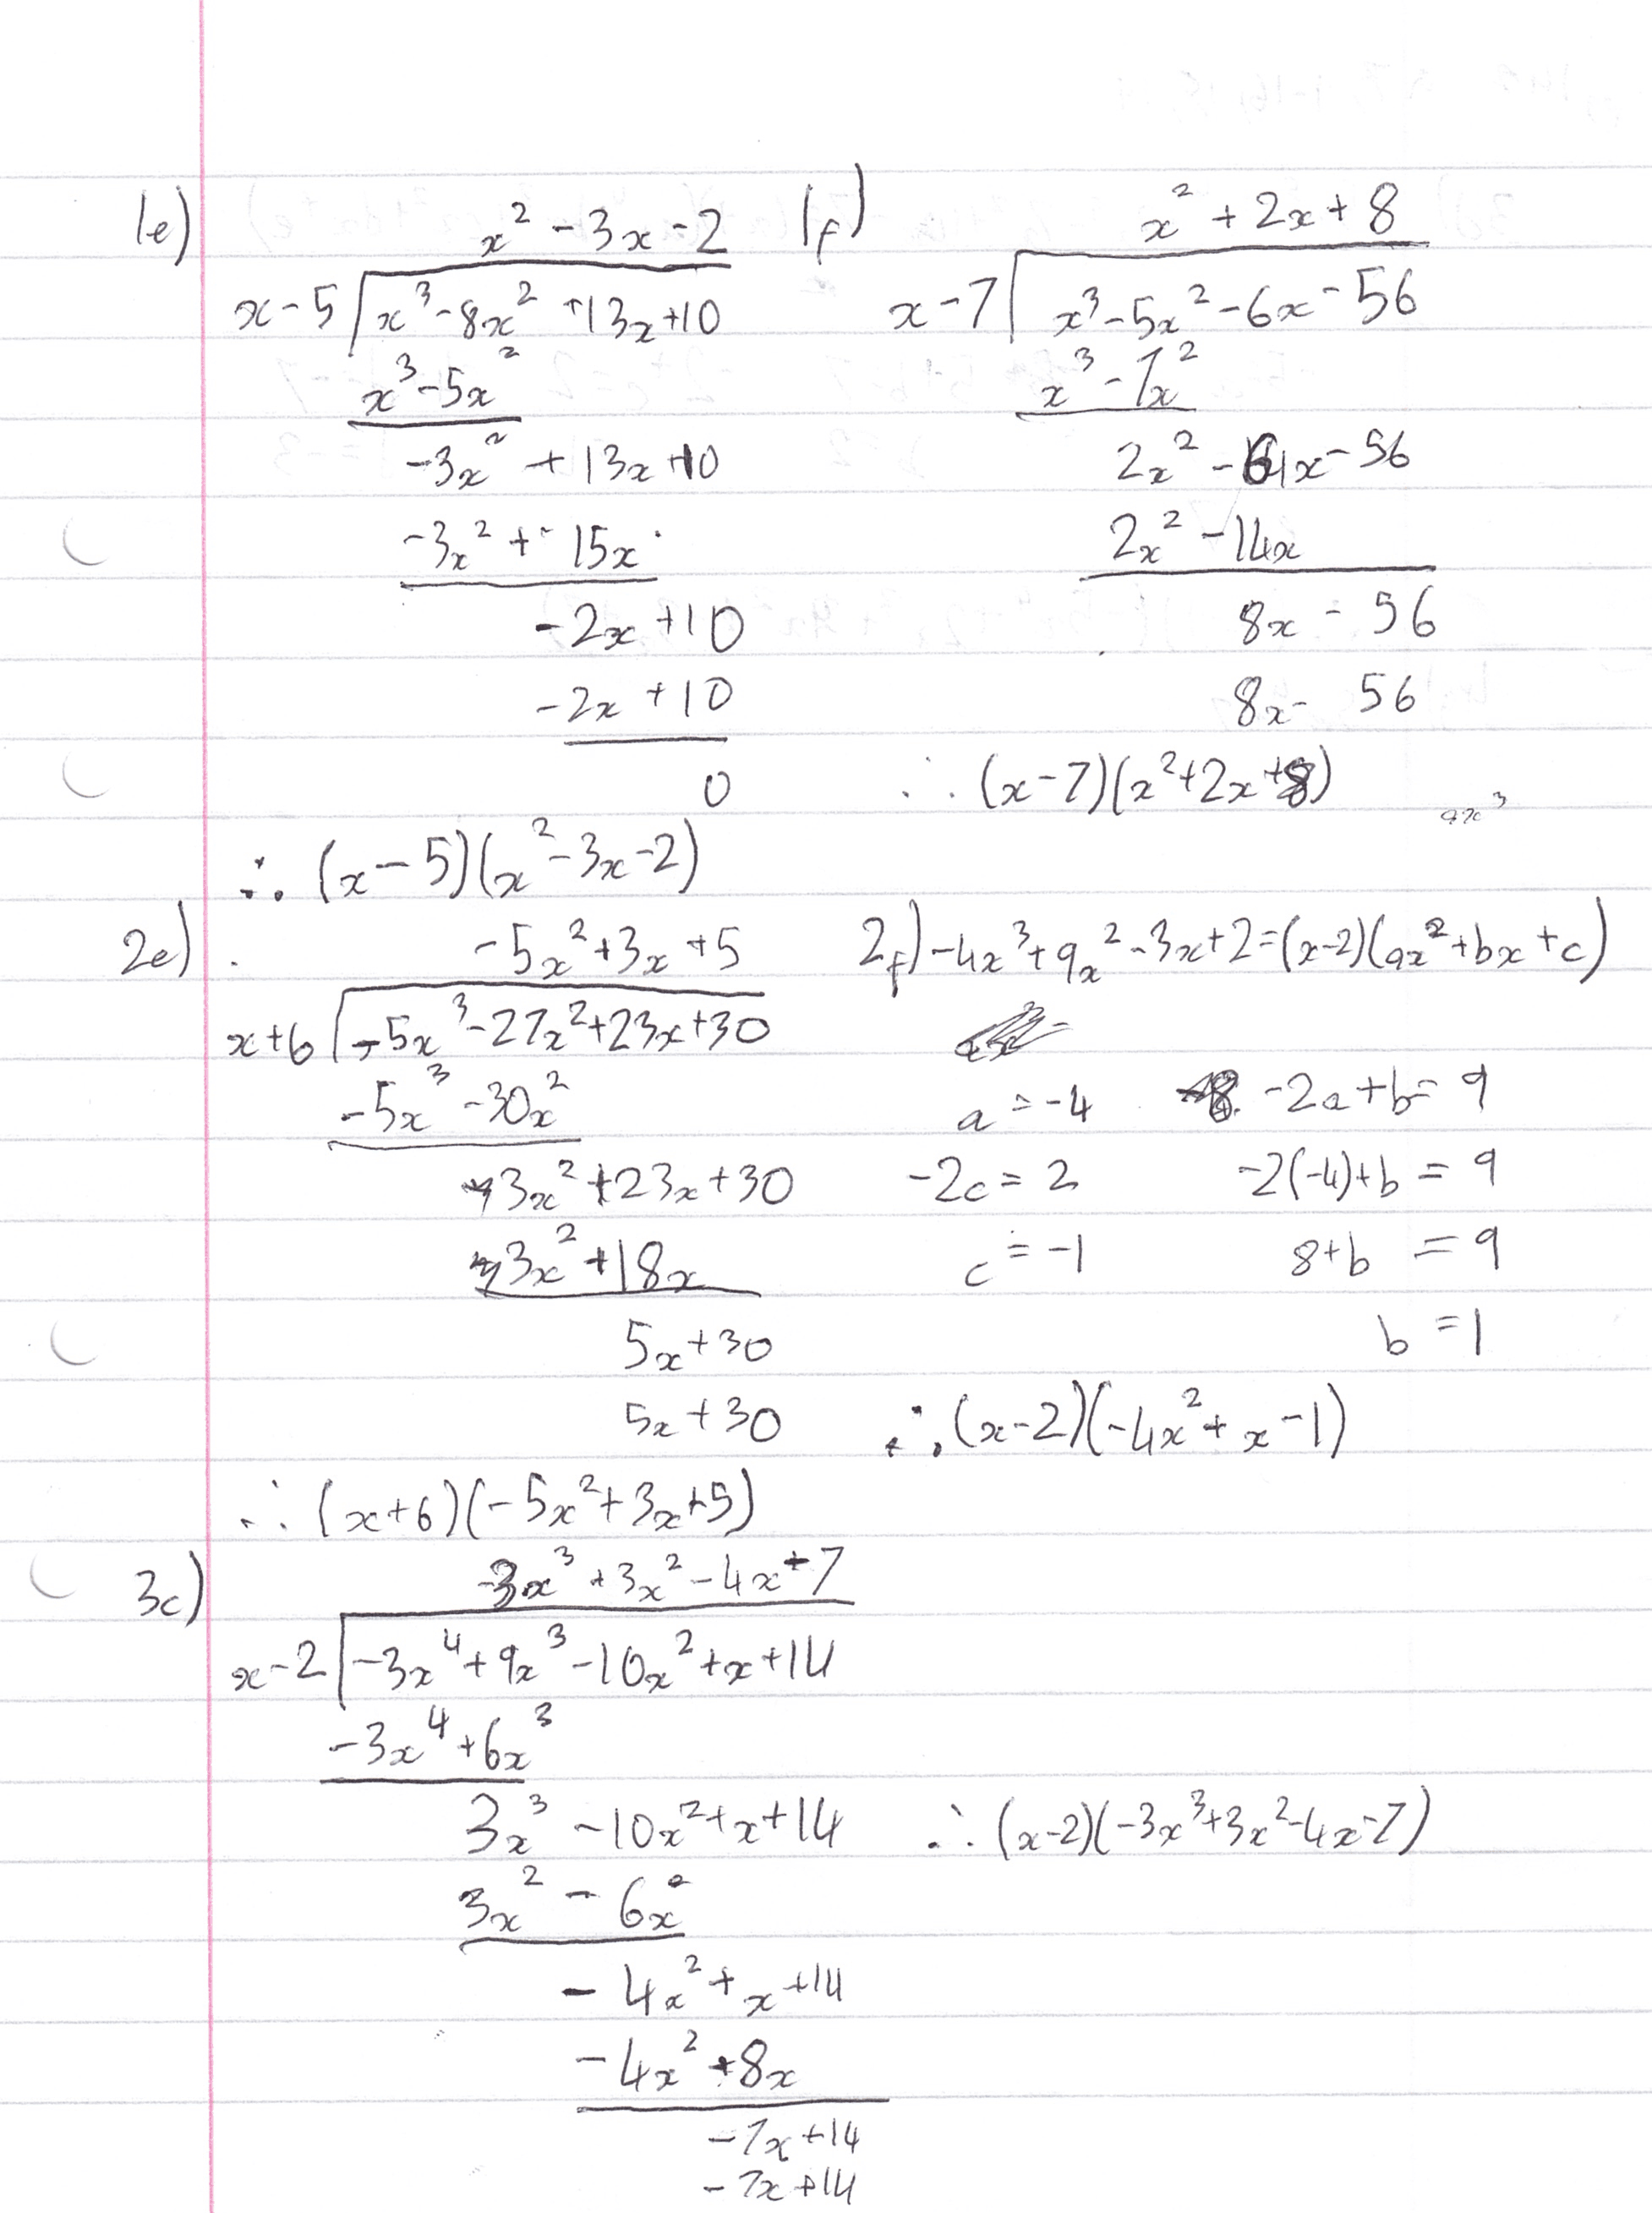 1e)
x² - 3x - 2
x - 5 | x³ - 8x² + 13x + 10
x³ - 5x²
-3x² + 13x + 10
-3x² + 15x
-2x + 10
-2x + 10
0
∴ (x - 5)(x² - 3x - 2)
1f)
x² + 2x + 8
x - 7 | x³ - 5x² - 6x - 56
x³ - 7x²
2x² - 6x - 56
2x² - 14x
8x - 56
8x - 56
∴ (x - 7)(x² + 2x + 8)
ax³
2e)
-5x² + 3x + 5
x + 6 | -5x³ - 27x² + 23x + 30
-5x³ - 30x²
3x² + 23x + 30
3x² + 18x
5x + 30
5x + 30
∴ (x + 6)(-5x² + 3x + 5)
2f) -4x³ + 9x² - 3x + 2 = (x - 2)(ax² + bx + c)
a = -4 -2a + b = 9
-2c = 2 -2(-4) + b = 9
c = -1 8 + b = 9
b = 1
∴ (x - 2)(-4x² + x - 1)
3c)
-3x³ + 3x² - 4x - 7
x - 2 | -3x⁴ + 9x³ - 10x² + x + 14
-3x⁴ + 6x³
3x³ - 10x² + x + 14
3x² - 6x²
-4x² + x + 14
-4x² + 8x
-7x + 14
-7x + 14
∴ (x - 2)(-3x³ + 3x² - 4x - 7)